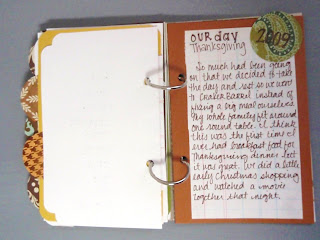 OUR day
Thanksgiving
2009
So much had been going
on that we decided to take
the day and rest so we went
to Cracker Barrel instead of
fixing a big meal ourselves.
My whole family fit around
one round table. I think
this was the first time I
ever had breakfast food for
Thanksgiving dinner but
it was great. We did a little
early Christmas shopping
and watched a movie
together that night.